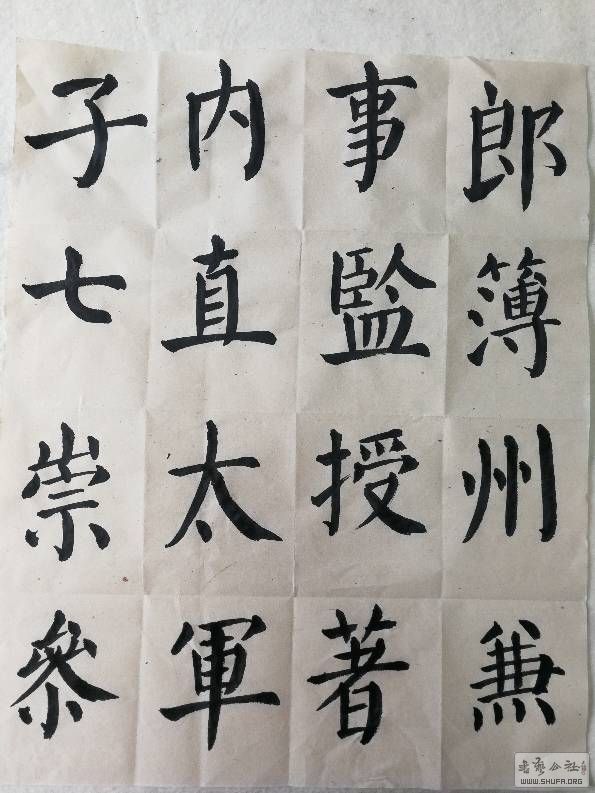 郎簿州兼
事監授著
内直太軍
子七崇參
書藝公社
WWW.SHUFA.ORG